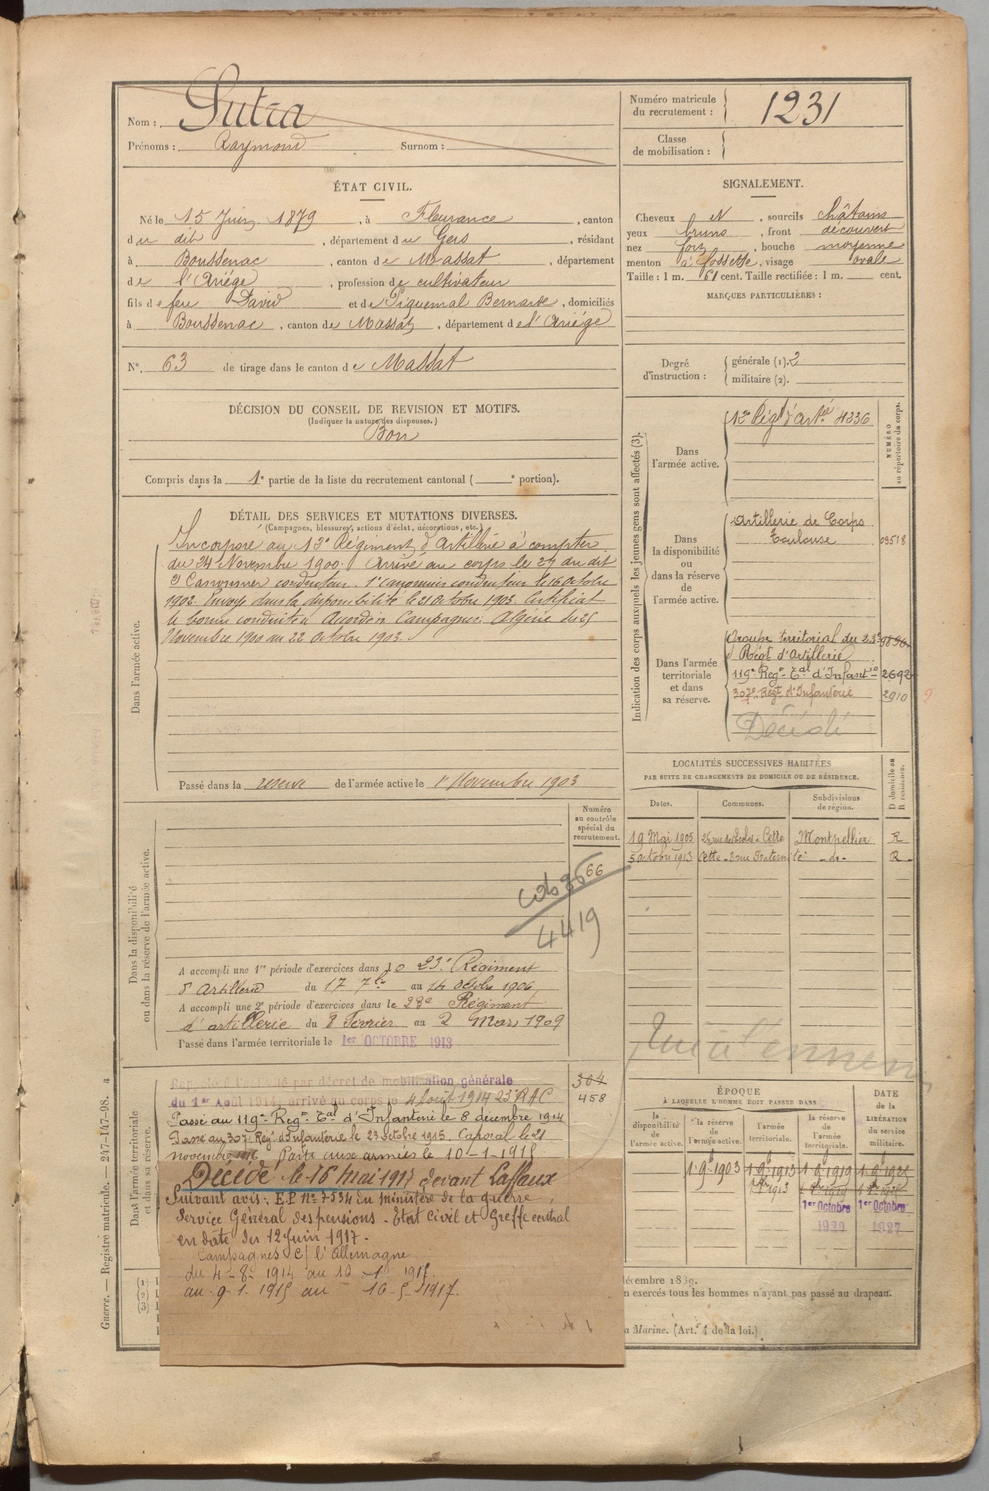 Nom : Sutra
Prénoms : Raymond Surnom :
Numéro matricule du recrutement : 1231
Classe de mobilisation :
ÉTAT CIVIL.
Né le 15 Juin 1879, à Fleurance, canton
du dit, département du Gers, résidant
à Boussenac, canton de Massat, département
de l'Ariége, profession de cultivateur
fils de feu David et de Piquemal Bernarde, domiciliés
à Boussenac, canton de Massat, département de l'Ariége
N° 63 de tirage dans le canton de Massat
SIGNALEMENT.
Cheveux N, sourcils châtains
yeux bruns, front découvert
nez fort, bouche moyenne
menton à fossette, visage ovale
Taille : 1 m. 61 cent. Taille rectifiée : 1 m. cent.
MARQUES PARTICULIÈRES :
Degré d'instruction : générale (1). 2
militaire (2).
DÉCISION DU CONSEIL DE REVISION ET MOTIFS.
(Indiquer la nature des dispenses.)
Bon
Compris dans la 1e partie de la liste du recrutement cantonal ( e portion).
DÉTAIL DES SERVICES ET MUTATIONS DIVERSES.
(Campagnes, blessures, actions d'éclat, décorations, etc.)
Dans l'armée active.
Incorporé au 13e Régiment d'Artillerie à compter
du 24 Novembre 1900. Arrivé au corps le 27 du dit
2e Canonnier conducteur. 1er canonnier conducteur le 16 octobre
1902. Envoyé dans la disponibilité le 21 octobre 1903. Certificat
de bonne conduite Accordé. Campagnes: Algérie du 25
Novembre 1900 au 22 octobre 1903.
Passé dans la réserve de l'armée active le 1er Novembre 1903
Indication des corps auxquels les jeunes gens sont affectés (3).
NUMÉRO au répertoire du corps.
Dans l'armée active.
Régt d'Artie 4336
Dans la disponibilité ou dans la réserve de l'armée active.
Artillerie de Corps
Toulouse 03518
Dans l'armée territoriale et dans sa réserve.
Groupe territorial du 23e
Régt d'Artillerie
119e Regt Tal d'Infanie 2692
307e Régt d'Infanterie 2910
Décédé
LOCALITÉS SUCCESSIVES HABITÉES
PAR SUITE DE CHANGEMENTS DE DOMICILE OU DE RÉSIDENCE.
Dates. Communes. Subdivisions de région. D domicile ou R résidence.
19 Mai 1905 Cette Montpellier R
5 octobre 1913 Cette - 3 rue Fraternité -do- R
Tué à l'ennemi
Dans la disponibilité ou dans la réserve de l'armée active.
Numéro au contrôle spécial du recrutement.
66
4419
A accompli une 1re période d'exercices dans le 23e Régiment
d'Artillerie du 17 7bre au 14 octobre 1906
A accompli une 2e période d'exercices dans le 23e Régiment
d'artillerie du 8 Fevrier au 2 Mars 1909
Passé dans l'armée territoriale le 1er OCTOBRE 1913
Dans l'armée territoriale et dans sa réserve.
304
458
Rappelé à l'activité par décret de mobilisation générale
du 1er Août 1914, arrivé au corps le 4 août 1914 23e RAC
Passé au 119e Regt Tal d'Infanterie le 8 décembre 1914
Passé au 307e Régt d'Infanterie le 23 octobre 1915. Caporal le 21
novembre 1916. Parti aux armées le 10-1-1915
Décédé le 16 mai 1917 devant Laffaux
Suivant avis. E.P. N° 7534 du ministère de la guerre,
Service Général des pensions - Etat civil et Greffe central
en date du 12 juin 1917.
Campagnes c/ l'Allemagne
du 4-8-1914 au 10-1-1915.
au 9-1-1915 au 16-5-1917.
ÉPOQUE
À LAQUELLE L'HOMME DOIT PASSER DANS
la disponibilité de l'armée active. la réserve de l'armée active. l'armée territoriale. la réserve de l'armée territoriale. DATE de la LIBÉRATION du service militaire.
1.9.1903 1.9.1913 1.9.1919
1er Octobre 1er Octobre
1927
décembre 1889.
n exercés tous les hommes n'ayant pas passé au drapeau.
a Marine. (Art. 4 de la loi.)
Guerre. — Registre matricule. — 247-147-98.